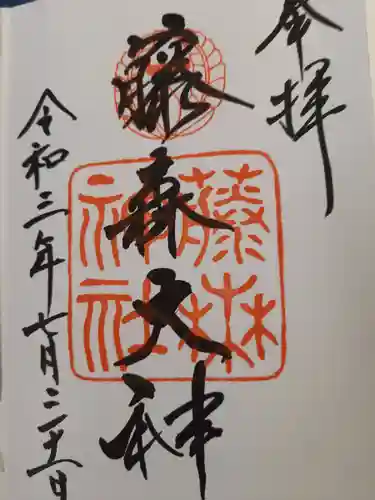 奉拝
藤森大神
藤森神社
令和三年七月二十一日